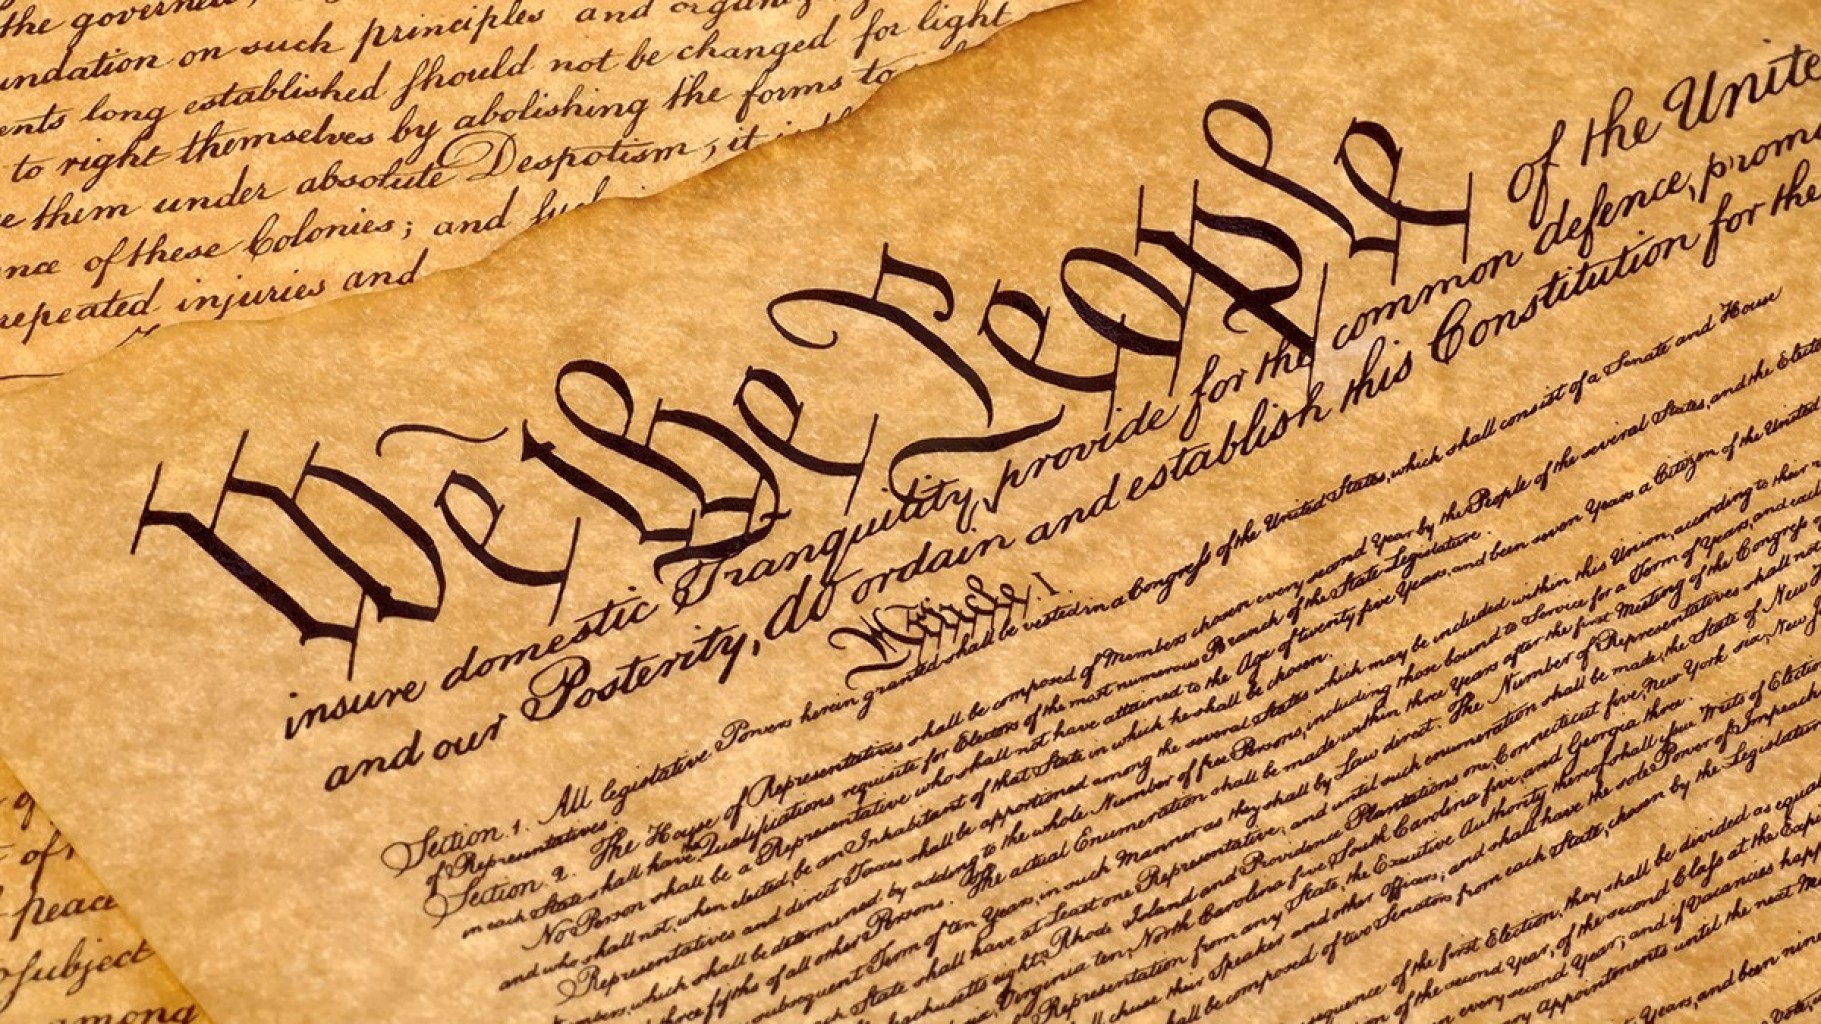 the governed,
undation on such principles and
ents long established should not be changed for light
to right themselves by abolishing the forms to
them under absolute Despotism, it is
nce of these Colonies; and such
repeated injuries and
We the People of the Unite
insure domestic Tranquility, provide for the common defence, promo
and our Posterity, do ordain and establish this Constitution for the
Article. I.
Section. 1. All legislative Powers herein granted shall be vested in a Congress of the United States, which shall consist of a Senate and House
of Representatives.
Section. 2. The House of Representatives shall be composed of Members chosen every second Year by the People of the several States, and the Electo
in each State shall have Qualifications requisite for Electors of the most numerous Branch of the State Legislature.
No Person shall be a Representative who shall not have attained to the Age of twenty five Years, and been seven Years a Citizen of the United
and who shall not, when elected, be an Inhabitant of that State in which he shall be chosen.
Representatives and direct Taxes shall be apportioned among the several States which may be included within this Union, according to their
which shall be determined by adding to the whole Number of free Persons, including those bound to Service for a Term of Years, and
three fifths of all other Persons. The actual Enumeration shall be made within three Years after the first Meeting of the Congress of
subsequent Term of ten Years, in such Manner as they shall by Law direct. The Number of Representatives shall not
State shall have at Least one Representative; and until such enumeration shall be made, the State of New
eight, Rhode Island and Providence Plantations one, Connecticut five, New York six, New J
Virginia ten, North Carolina five, South Carolina five, and Georgia three.
Representation from any State, the Executive Authority thereof shall issue Writs of Election
shall chuse their Speaker and other Officers; and shall have the sole Power of Impeach
shall be composed of two Senators from each State, chosen by the Legislature
of the first Election, they shall be divided as equal
of the second Year, of the second Class at the Expi
every second Year; and if Vacancies happ
Appointments until the next Me
Years, and been nine
Vote,
of
peace
subject
among